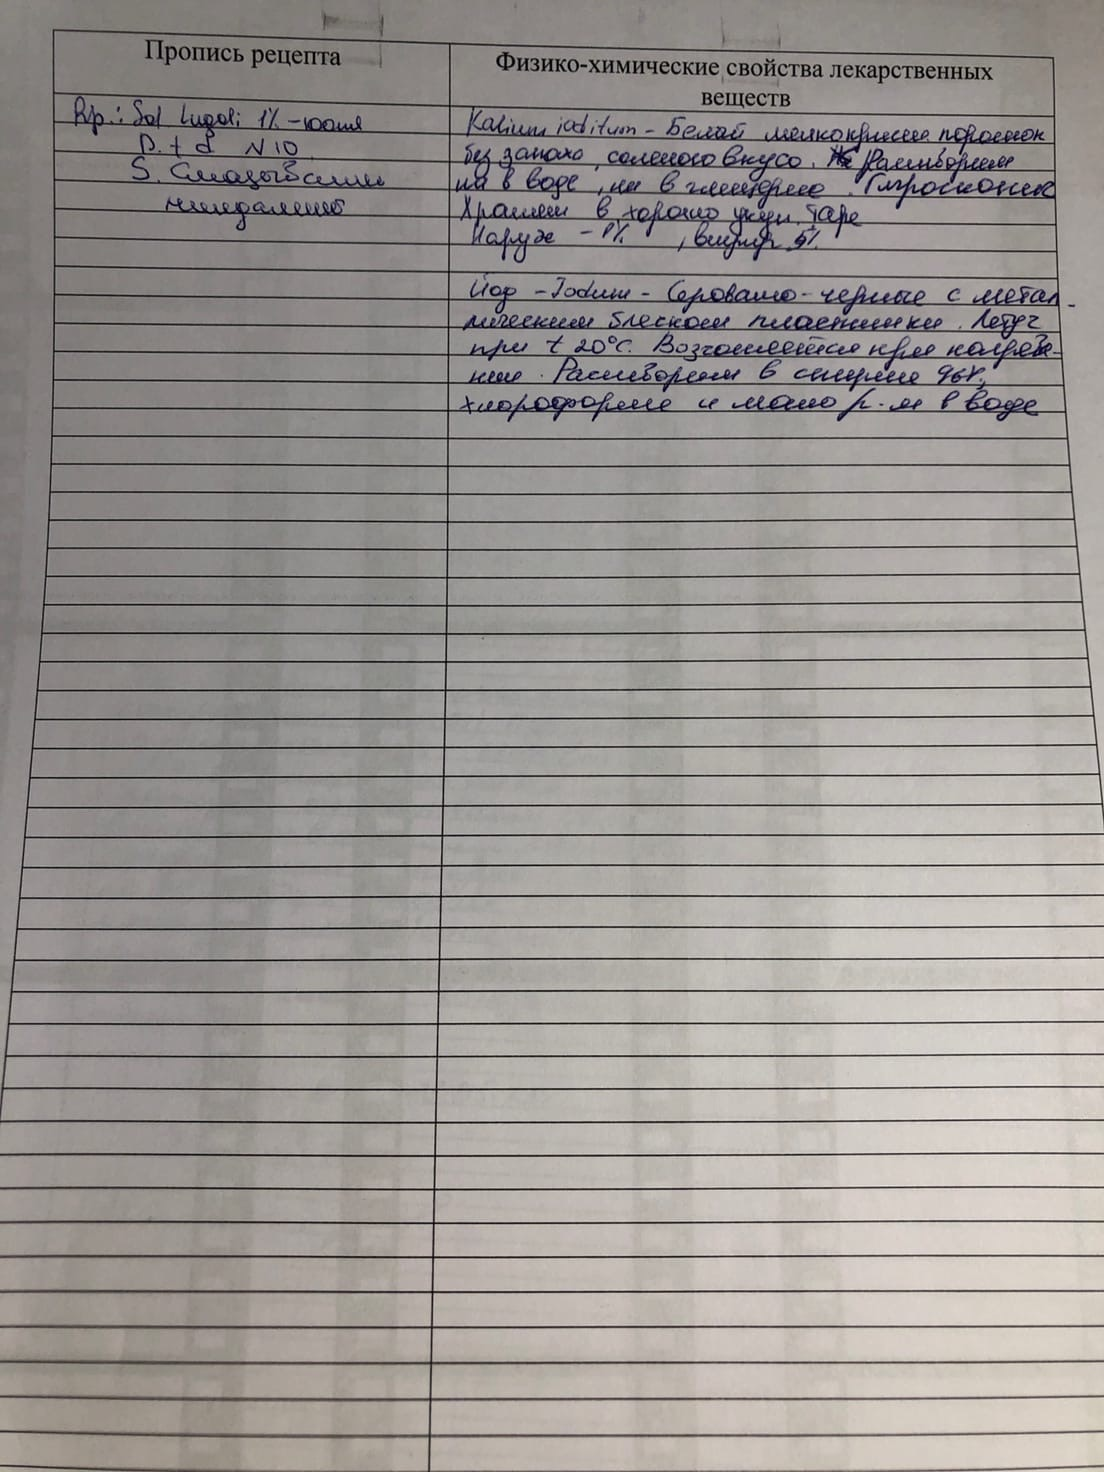 Пропись рецепта
Физико-химические свойства лекарственных
веществ
Rp.: Sol Lugoli 1% - 100мл
D. t d N 10
S. Смазывание
миндалин
Kalium ioditum - Белый мелкокрист. порошок
без запаха, соленого вкуса. Растворим
в воде, в глицерине. Гигроскопич
Хранят в хорошо укуп. таре
Наруж - 1% , внутр 5%
Йод - Iodum - Серовато-черные с метал-
лическим блеском пластинки. Летуч
при t 20°C. Возгоняется при нагрева-
нии. Растворим в спирте 96%,
хлороформе и мало р-м в воде